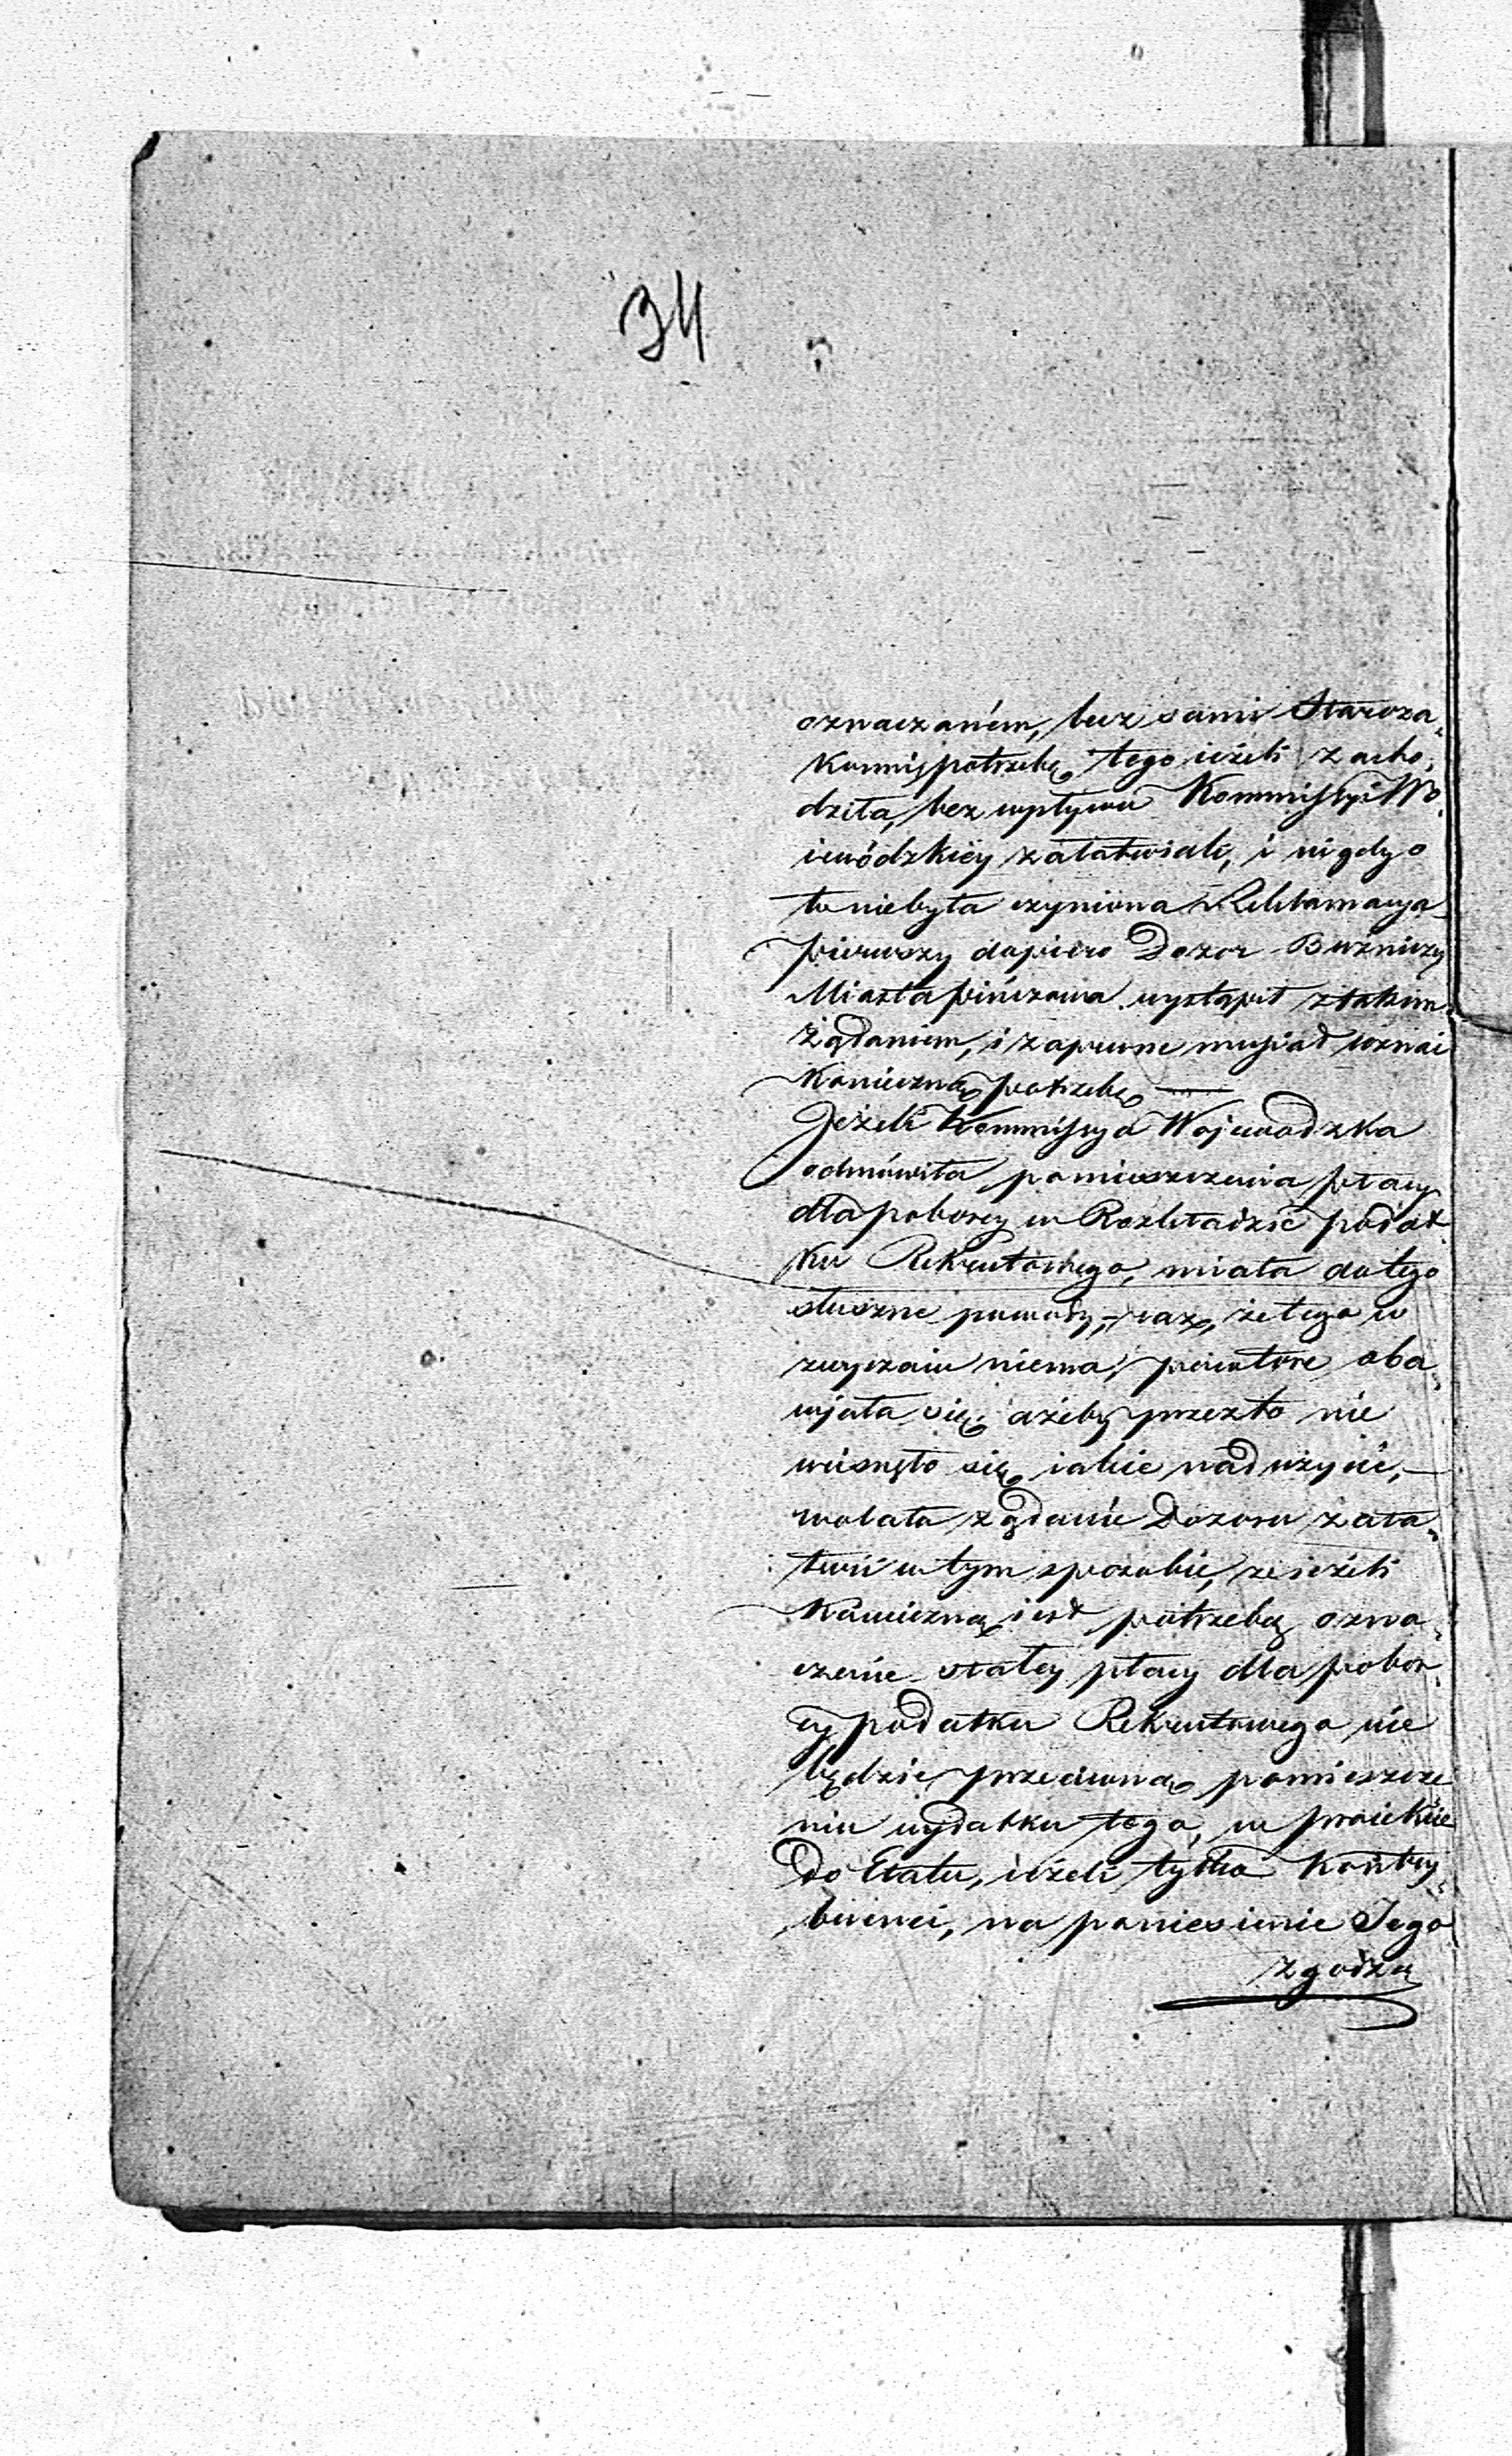 34
oznaczaném, lecz sami Staroza„
konni potrzebę tego ieżeli zacho„
dziła, bez wpływu Kommissyi Wo„
iewódzkiéy załatwiali, i nigdy o
to niebyła czyniona Reklamacya
pierwszy dopiéro Dozor Bużniczy
Miasta Pińczowa wystąpił z takim
żądaniem, i zapewne musiał uznać
konieczną potrzebę —
Jeżeli Kommissya Wojewodzka
odmówiła pomieszczenia płacy
dla poborcy w Rozkładzie podat„
ku Rekrutowego, miała do tego
słuszne powody, – raz, że tego w
zwyczaiu niema, powtóre oba„
wjała się, ażeby przezto nie
wcisnęło się iakie nadużycie, —
wolała żądanie Dozoru zała„
twić w tym sposobie, że ieżeli
konieczną iest potrzebą ozna„
czenie stałey płacy dla pobor„
cy podatku Rekrutowego nie
będzie przeciwną pomieszcze
niu wydatku tego, w proiekcie
do Etatu, ieżeli tylko kontry„
buenci, na poniesienie Tego
zgodzą